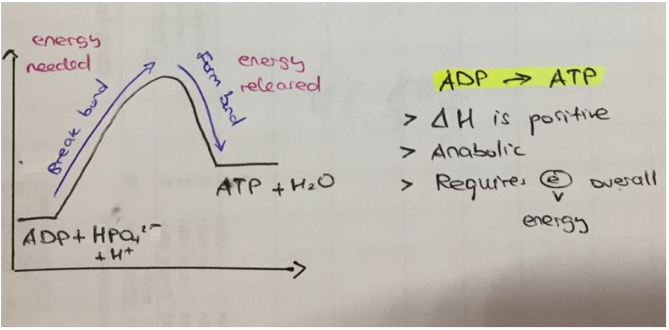 energy
needed
Break bond
Form bond
energy
released
ADP + HPO₄²⁻
+ H⁺
ATP + H₂O
ADP → ATP
> ΔH is positive
> Anabolic
> Requires e overall
energy